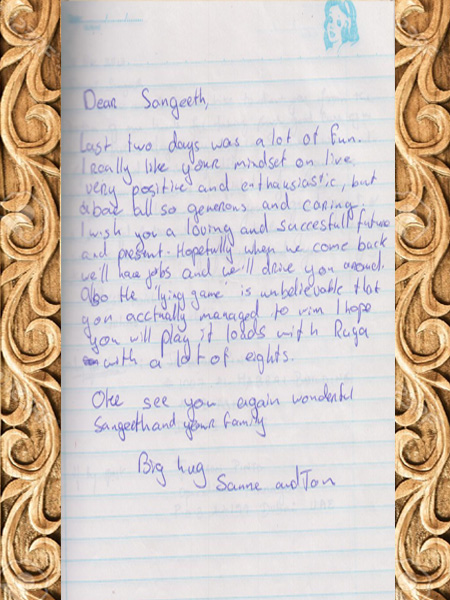 Dear Sangeeth,
Last two days was a lot of fun.
I really like your mindset on live
very positive and enthausiastic, but
above all so generous and caring.
I wish you a loving and succesfull future
and present. Hopefully when we come back
we'll have jobs and we'll drive you around.
Also the 'lying game' is unbelievable that
you acctually managed to win I hope
you will play it loads with Ruga
with a lot of eights.
Oke see you again wonderful
Sangeeth and your family
Big hug
Sanne and Tom